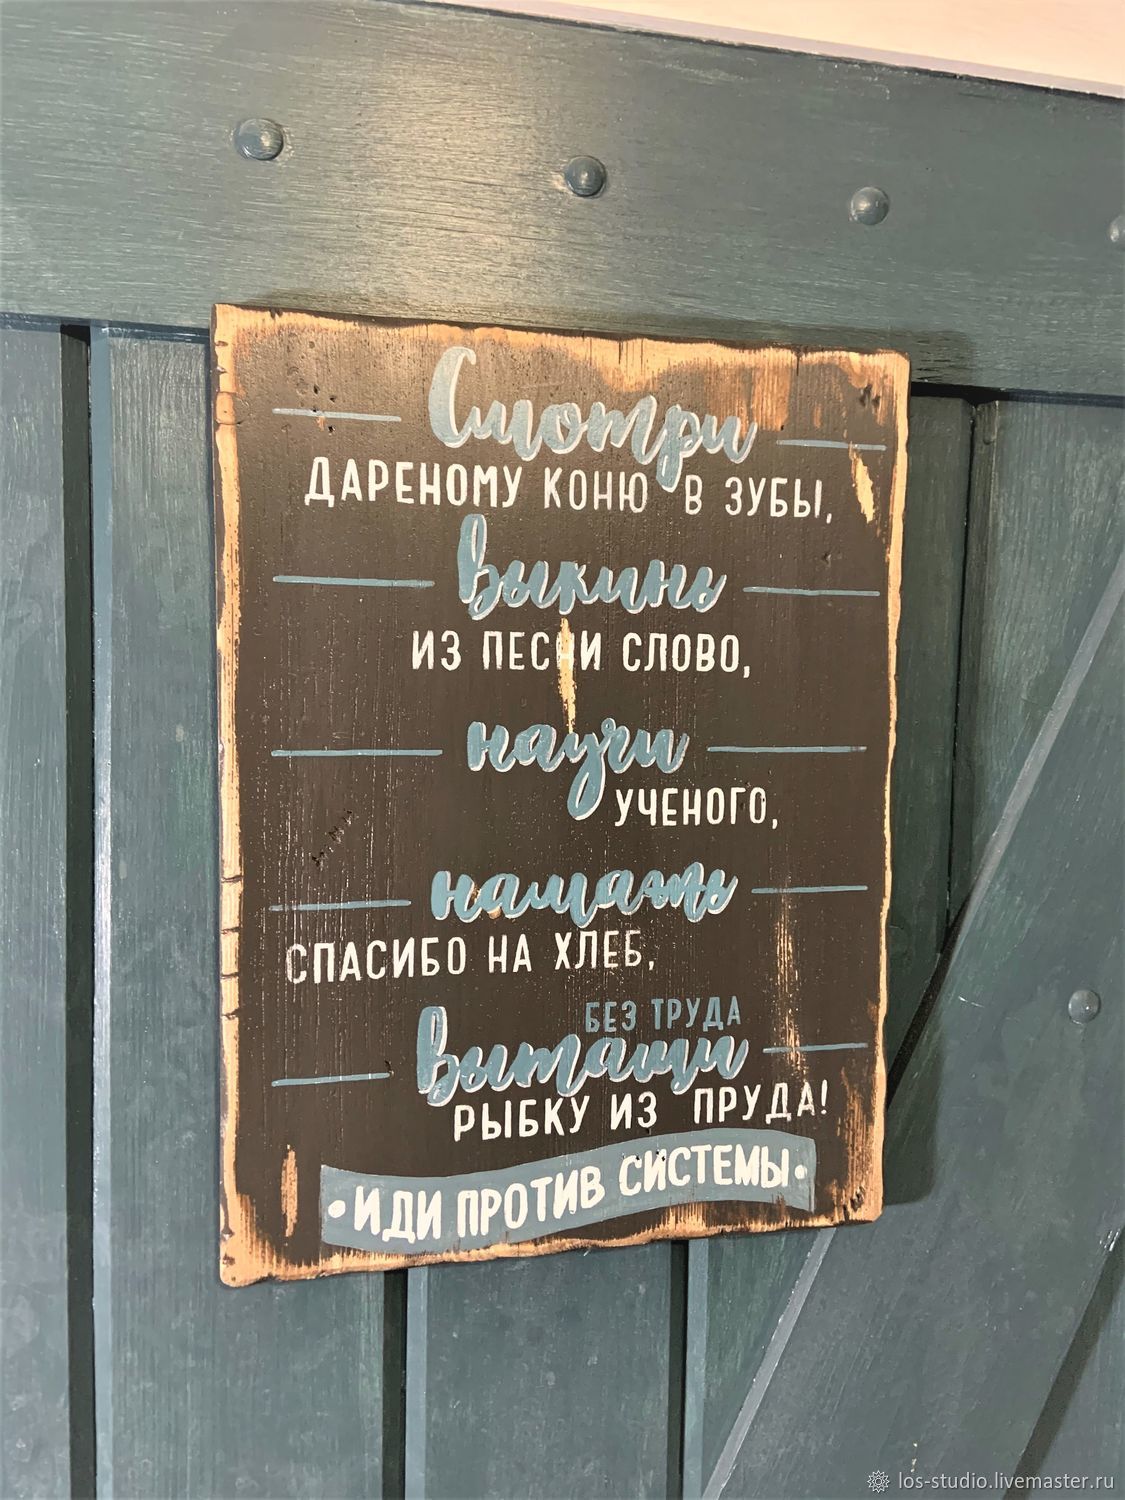 Смотри
ДАРЕНОМУ КОНЮ В ЗУБЫ,
выкинь
ИЗ ПЕСНИ СЛОВО,
научи
УЧЕНОГО,
намажь
СПАСИБО НА ХЛЕБ,
БЕЗ ТРУДА
вытащи
РЫБКУ ИЗ ПРУДА!
•ИДИ ПРОТИВ СИСТЕМЫ•
los-studio.livemaster.ru